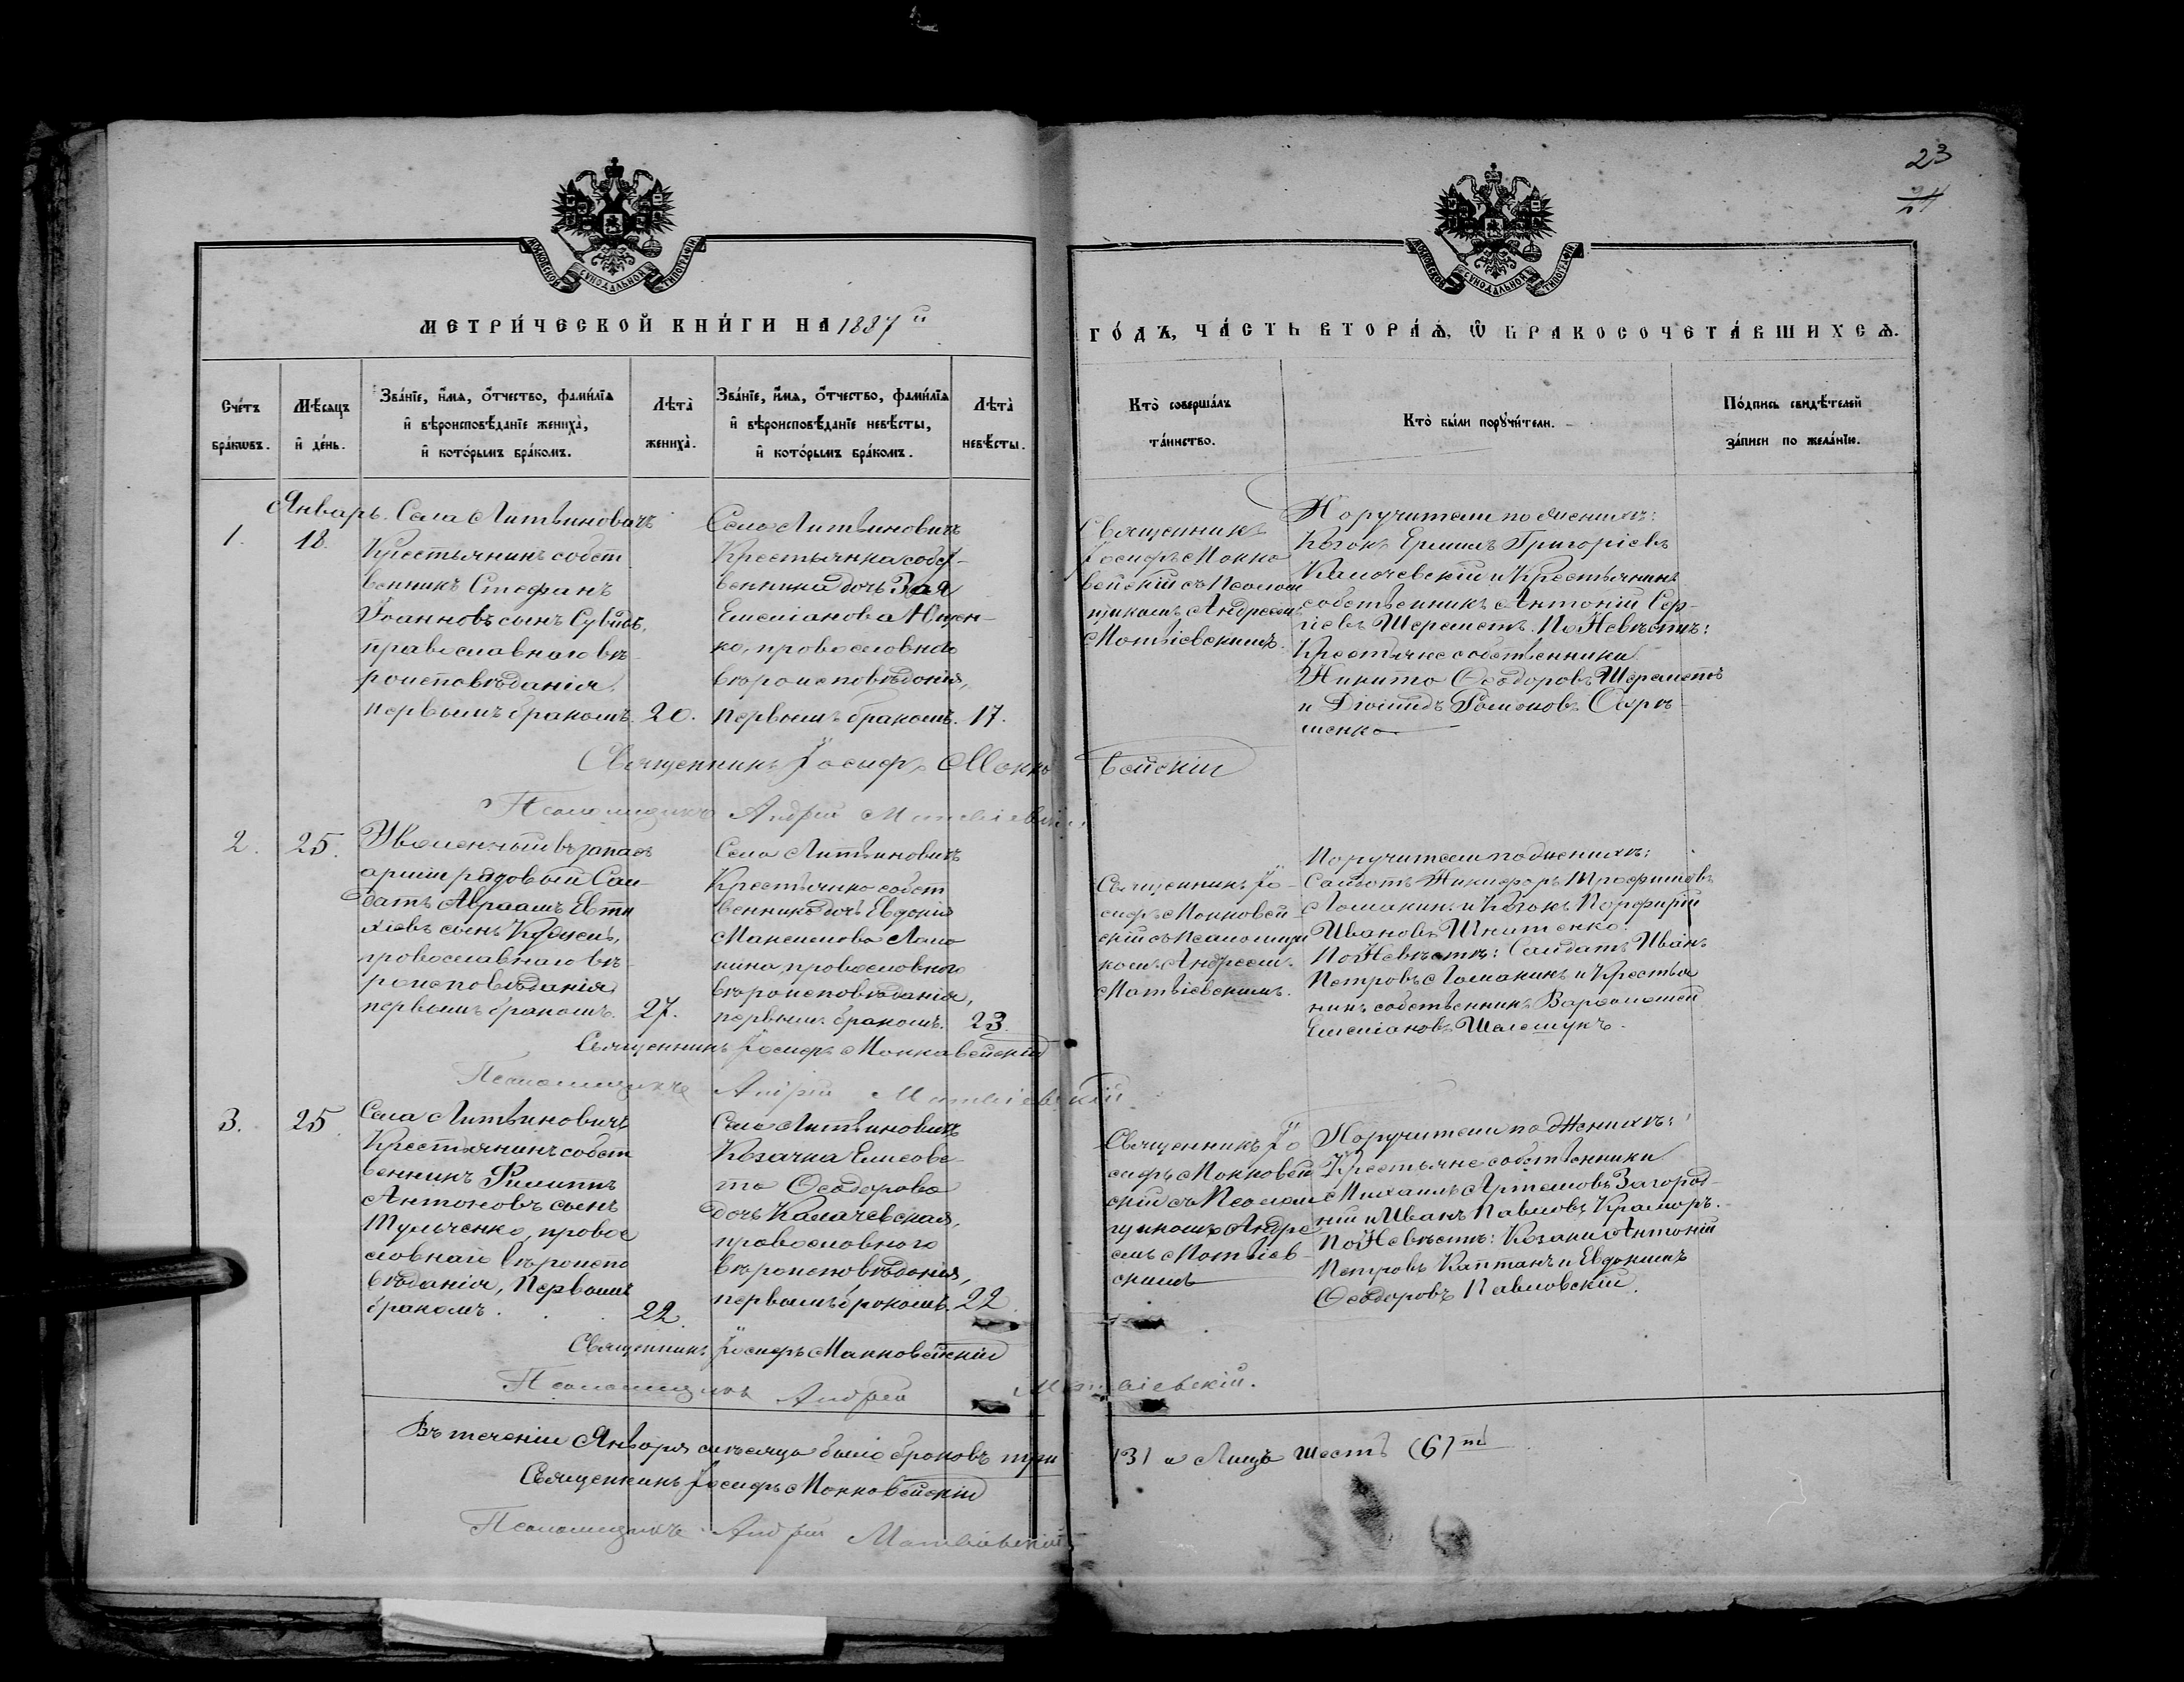 23
24
МОСКОВСКОЙ СѴНОДАЛЬНОЙ ТИПОГРАФІИ
МОСКОВСКОЙ СѴНОДАЛЬНОЙ ТИПОГРАФІИ
МЕТРИ́ЧЕСКОЙ КНИ́ГИ НА 1887й
ГО́ДЪ, ЧА́СТЬ ВТОРА́Ѧ, Ѽ БРАКОСОЧЕТА́ВШИХСѦ.
Сче́тъ бра́кѡвъ.
Мѣ́сѧцъ и҆ де́нь.
Зва́нїе, и҆́мѧ, ѻ҆́тчество, фами́лїѧ
и҆ вѣроисповѣ́данїе жениха̀,
и҆ кото́рымъ бра́комъ.
Лѣта̀ жениха̀.
Зва́нїе, и҆́мѧ, ѻ҆́тчество, фами́лїѧ
и҆ вѣроисповѣ́данїе невѣ́сты,
и҆ кото́рымъ бра́комъ.
Лѣта̀ невѣ́сты.
Кто̀ соверша́лъ
та́инство.
Кто̀ бы́ли порꙋчи́тели.
По́дпись свидѣ́телей
за́писи по жела́нїю.
Январь.
1.
18.
Села Литвиновичъ
Крестьянинъ собст
венникъ Стефанъ
Іоанновъ сынъ Сувидъ,
православнаго вѣ-
роисповѣданія,
первымъ бракомъ. 20.
Села Литвиновичъ
Крестьянка собст-
венника дочь Зоя
Емеліанова Ющен-
ко, православнаго
вѣроисповѣданія,
первымъ бракомъ. 17.
Священникъ
Іосифъ Макка
вейскій съ Псалом
щикомъ Андреемъ
Матвіевскимъ.
Поручители по женихѣ:
Козакъ Ермилъ Григоріевъ
Калачевскій и Крестьянинъ
собственникъ Антоній Сер-
гіевъ Шереметъ. По Невѣстѣ:
Крестьяне собственники
Никита Ѳеодоровъ Шереметъ
и Діомидъ Романовъ
Священникъ Іосифъ Маккавейскій
Псаломщикъ Андрей Матвіевскій
2.
25.
Уволенный въ запасъ
арміи рядовый Сол-
датъ Авраамъ Евти
хіевъ сынъ
православнаго вѣ-
роисповѣданія
первымъ бракомъ. 27.
Села Литвиновичъ
Крестьянка собст
венника дочь Евдокія
Максимова Лома
кина, православнаго
вѣроисповѣданія,
первымъ бракомъ. 23.
Священникъ Іо-
сифъ Маккавей-
скій съ Псаломщи
комъ Андреемъ
Матвіевскимъ.
Поручители по женихѣ:
Солдатъ Никифоръ Трофимовъ
Ломакинъ и Козакъ Порфирій
Ивановъ
По Невѣстѣ: Солдатъ Иванъ
Петровъ Ломакинъ и Крестья
нинъ собственникъ Варѳоломей
Емеліановъ
Священникъ Іосифъ Маккавейскій
Псаломщикъ Андрей Матвіевскій
3.
25.
Села Литвиновичъ
Крестьянинъ собст
венникъ Филиппъ
Антоновъ сынъ
Тульченко, правос
лавнаго вѣроиспо
вѣданія, первымъ
бракомъ. 22.
Села Литвиновичъ
Козачка Елисаве-
та Ѳеодорова
дочь Калачевская,
православнаго
вѣроисповѣданія,
первымъ бракомъ. 22.
Священникъ Іо
сифъ Маккавей
скій съ Псалом
щикомъ Андре
емъ Матвіев-
скимъ
Поручители по Женихѣ:
Крестьяне собственники
Михаилъ Артемовъ Загород-
ній и Иванъ Павловъ Краморъ.
По Невѣстѣ: Козаки Антоній
Петровъ Каптанъ и Евдокимъ
Ѳеодоровъ Павловскій.
Священникъ Іосифъ Маккавейскій
Псаломщикъ Андрей Матвіевскій.
Въ теченіи Января мѣсяца было браковъ три (3) а Лицъ шесть (6)ть
Священникъ Іосифъ Маккавейскій
Псаломщикъ Андрей Матвіевскій